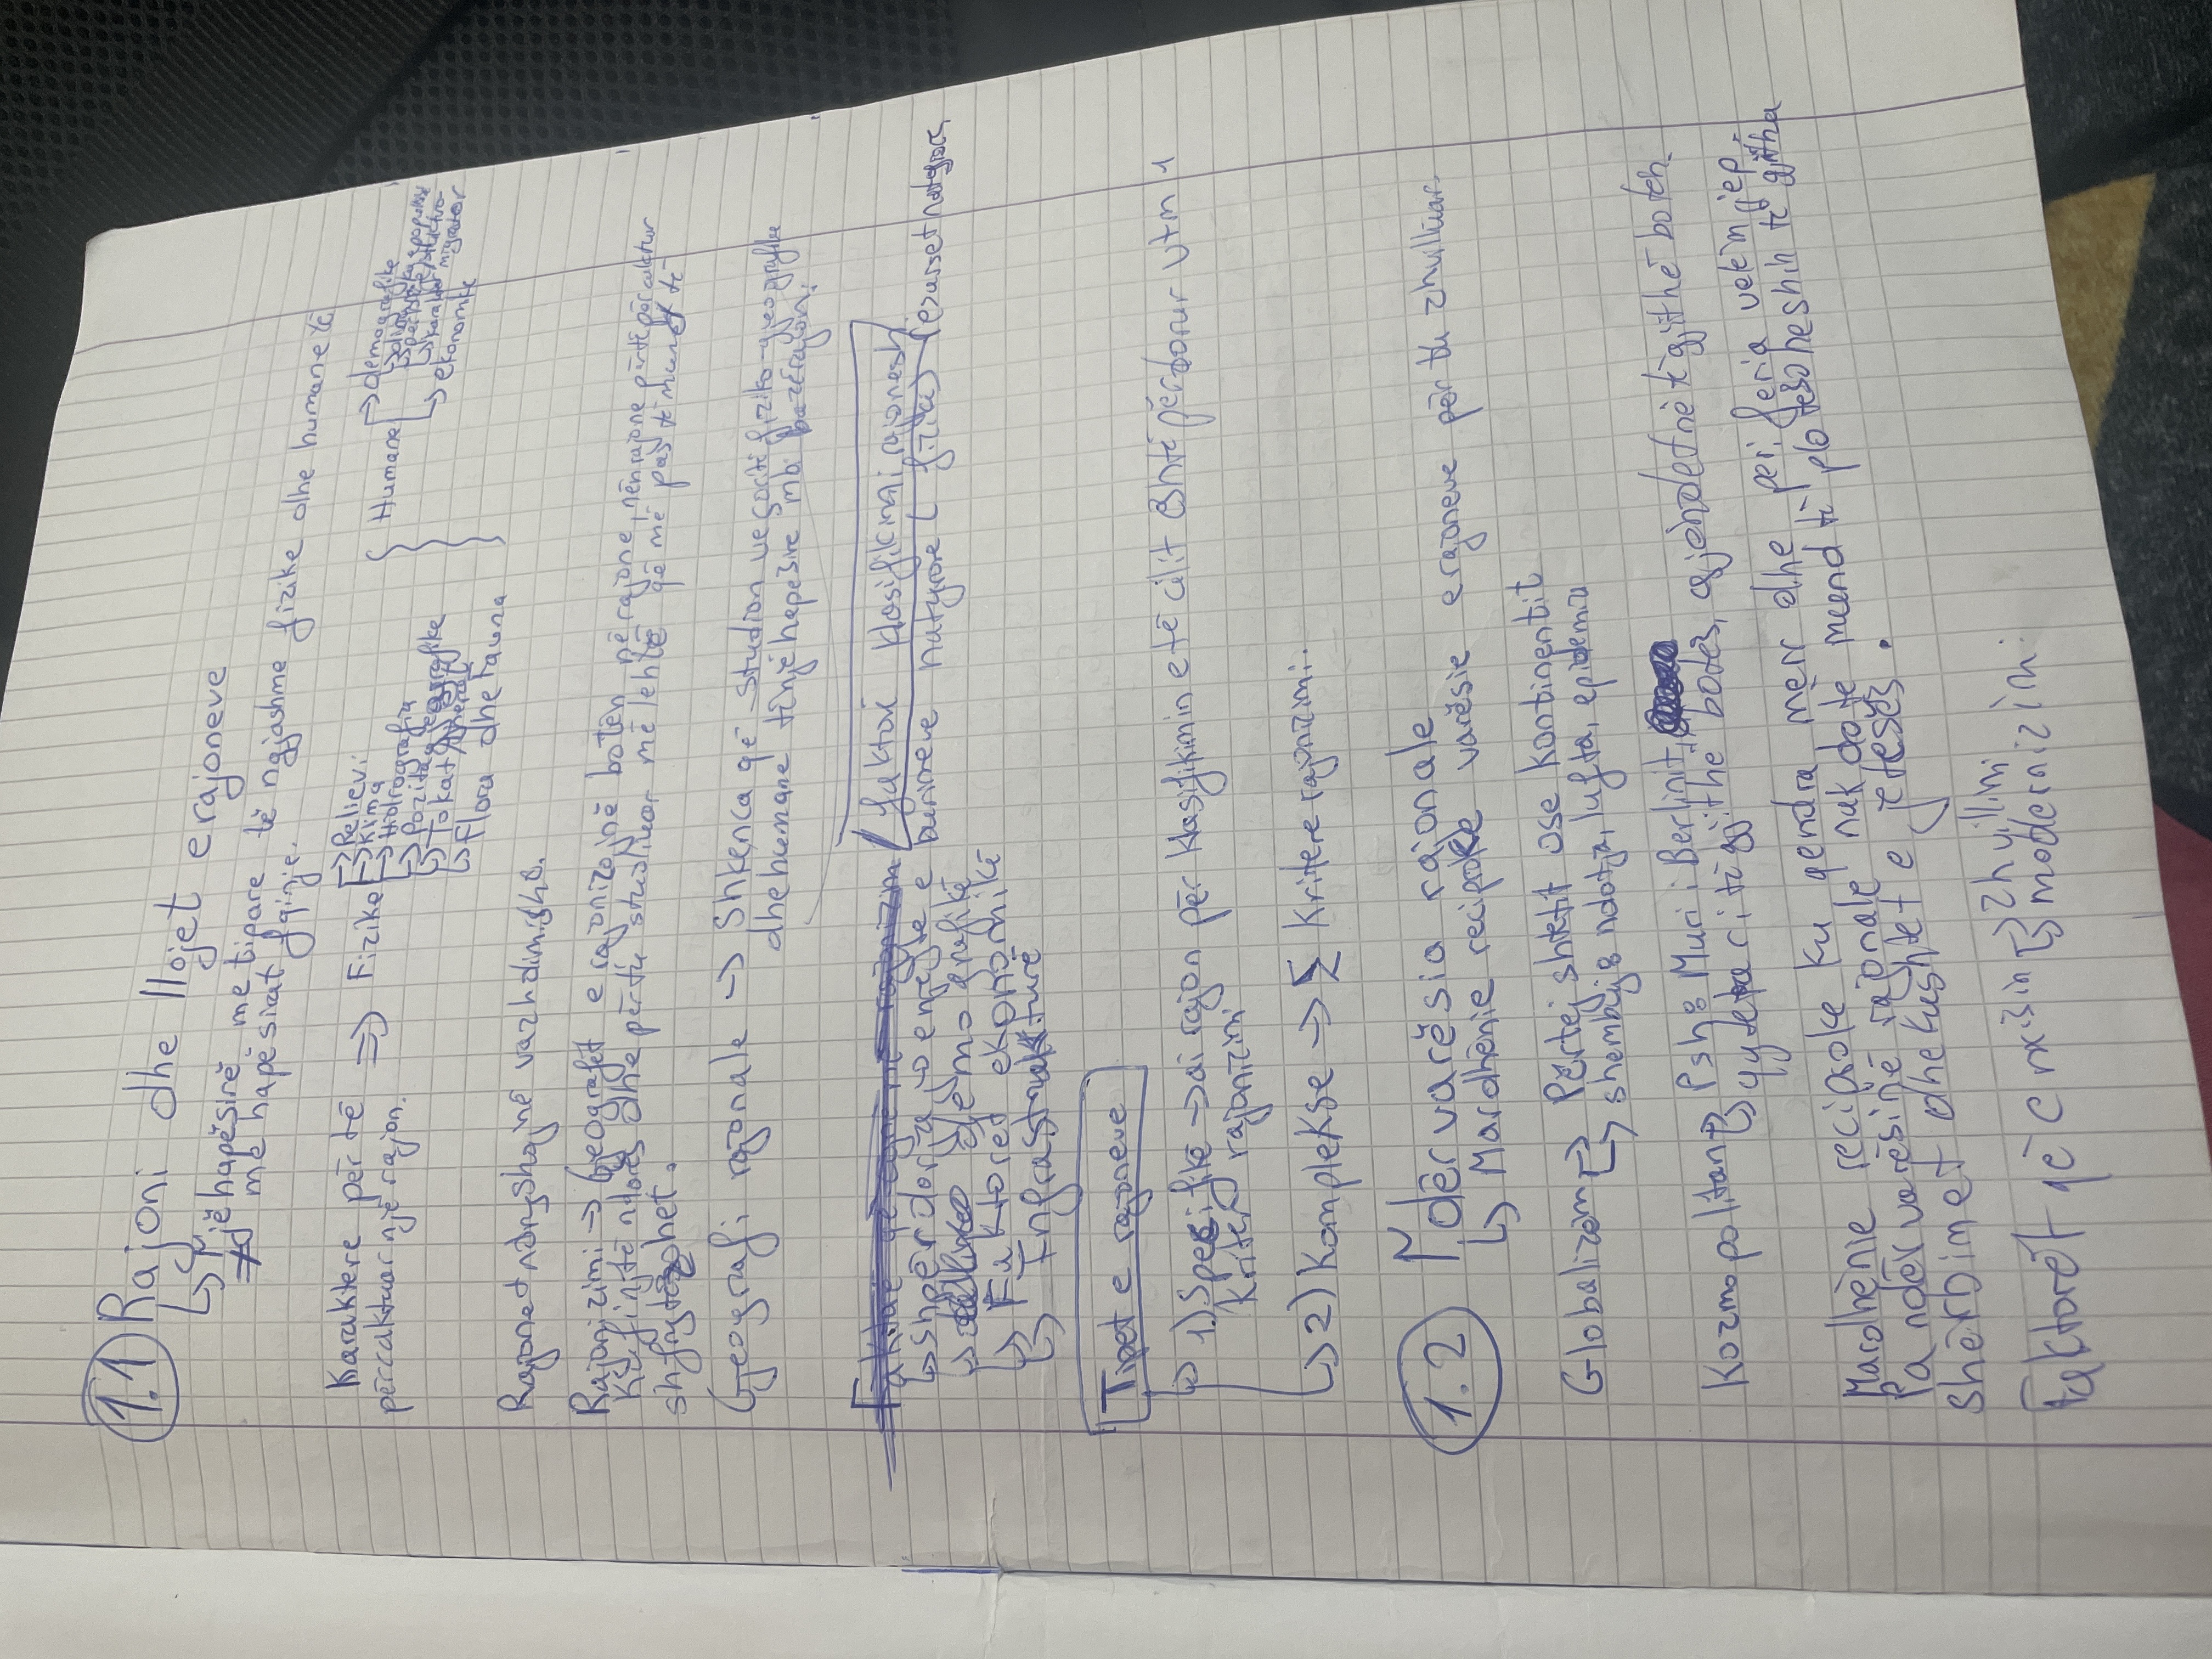 1.1 Rajoni dhe llojet e rajoneve
↳ Një hapësirë me tipare të ngjashme fizike dhe humane të
≠ me hapësirat fqinje.
Karaktere për të ⇒ Fizike → Relievi
përcaktuar një rajon. → Klima
→ Hidrografia
→ Pozita gjeografike
→ Tokat / Mineral
↳ Flora dhe Fauna
Humane → demografike
↳ dinamika e popullsisë
↳ përbërje/struktura
↳ karakter migrator
↳ ekonomike
Rajonet ndryshojnë vazhdimisht.
Rajonizimi → Gjeografët e rajonizojnë botën në rajone, nënrajone për të përcaktur
Kufinjtë ndarës dhe për tu studiuar më lehtë që më pas të mund të
shfrytëzohet.
Gjeografi rajonale → Shkenca që studion veçoritë fiziko-gjeografike
dhe humane të një hapësire mbi bazë rajoni.
faktorë klasifikimi rajonesh
↳ shpërdarja jo enjëjte e burimeve natyrore (fizik)
↳ demografikë
↳ Faktorët ekonomikë
↳ Infrastrukturë
Tipet e rajoneve
↳ 1) Specifikë → ai rajon për klasifikimin e të cilit është përdorur vtm 1
kriter rajonizimi
↳ 2) Komplekse → Σ Kritere rajonizimi.
1.2 Ndërvarësia rajonale
↳ Mardhënie reciproke varësie e rajoneve për tu zhvilluar.
Globalizëm → Përtej shtetit ose kontinentit
↳ shembuj: ndotja, lufta, epidemia
Kozmopolitan → Psh: Muri i Berlinit,
↳ qytetar i të gjithë botës, gjendet në të gjithë botën.
Mardhënie reciproke ku qendra merr dhe periferia vetëm jep.
Pa ndërvarësinë rajonale nuk do të mund të plotësoheshin të gjitha
shërbimet dhe kushtet e jetesës.
Faktorët që e rrisin → zhvillimi
↳ modernizimi